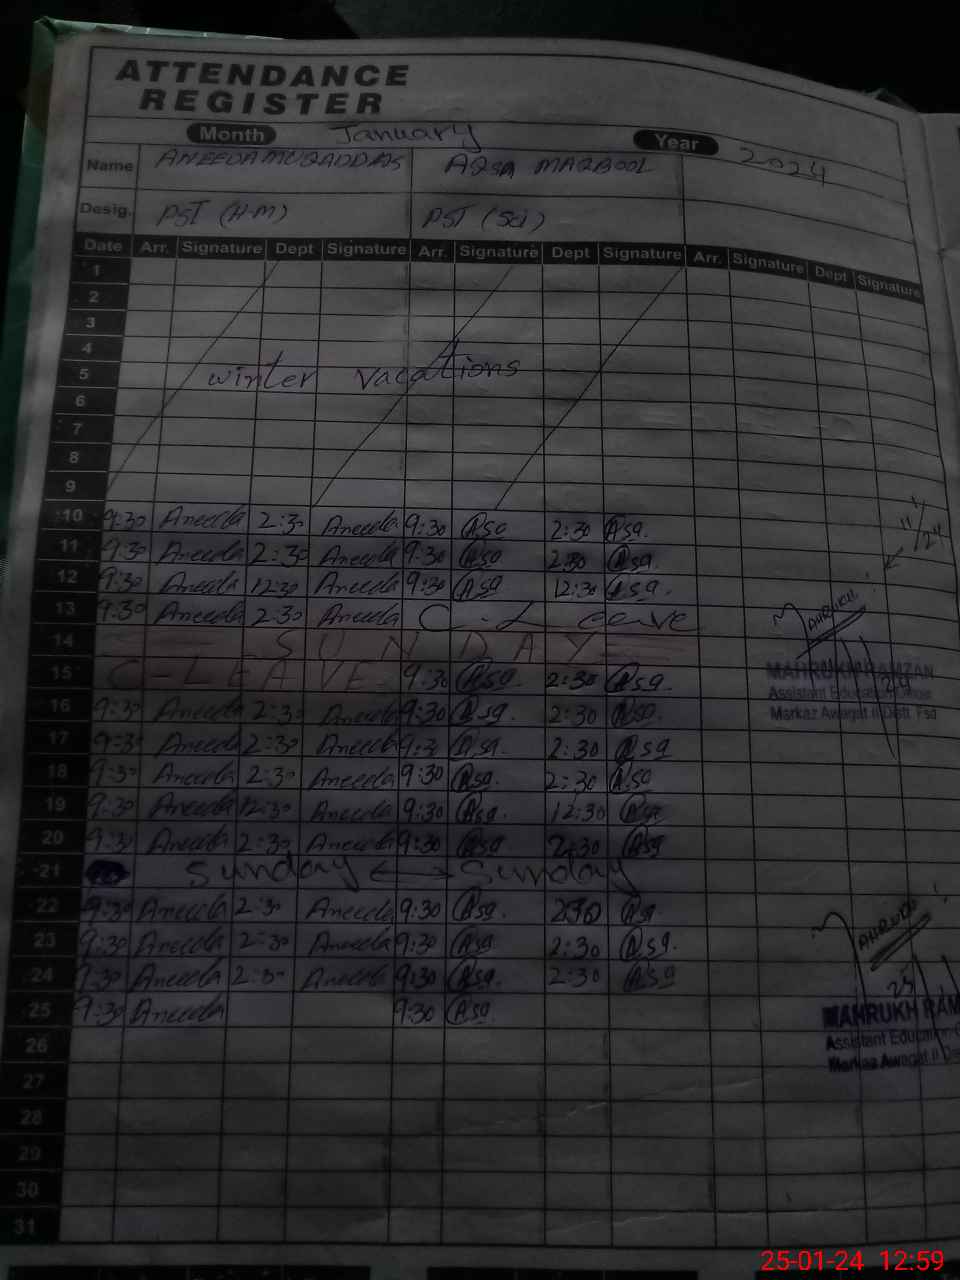 ATTENDANCE
REGISTER
Month January Year 2024
Name ANEEDA MUQADDAS AQSA MAQBOOL
Desig. PST (H-M) PST (Sci)
Date Arr. Signature Dept Signature Arr. Signature Dept Signature Arr. Signature Dept Signature
1
2
3
4
5 winter vacations
6
7
8
9
10 9:30 Aneeda 2:30 Aneeda 9:30 Asq 2:30 Asq.
11 9:30 Aneeda 2:30 Aneeda 9:30 Asq 2:30 Asq.
12 9:30 Aneeda 12:30 Aneeda 9:30 Asq. 12:30 Asq.
13 9:30 Aneeda 2:30 Aneeda C-Leave
14 SUNDAY
15 C-LEAVE 9:30 Asq. 2:30 Asq.
16 9:30 Aneeda 2:30 Aneeda 9:30 Asq. 2:30 Asq.
17 9:30 Aneeda 2:30 Aneeda 9:30 Asq. 2:30 Asq
18 9:30 Aneeda 2:30 Aneeda 9:30 Asq. 2:30 Asq
19 9:30 Aneeda 12:30 Aneeda 9:30 Asq. 12:30 Asq
20 9:30 Aneeda 2:30 Aneeda 9:30 Asq 2:30 Asq
21 Sunday Sunday
22 9:30 Aneeda 2:30 Aneeda 9:30 Asq. Asq.
23 9:30 Aneeda 2:30 Aneeda 9:30 Asq. 2:30 Asq.
24 9:30 Aneeda 2:30 Aneeda 9:30 Asq. 2:30 Asq
25 9:30 Aneeda 9:30 Asq.
26
27
28
29
30
31
11/1/24
MAHRUKH
MAHRUKH RAMZAN
Assistant Education Officer
Markaz Awagat II Distt. Fsd
MAHRUKH
25
MAHRUKH RAM
Assistant Education
Markaz Awagat II Dis
25-01-24 12:59